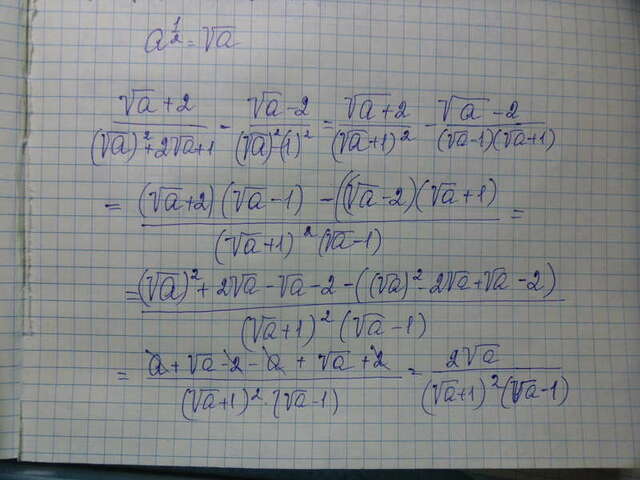 a^{1/2} = √a
(√a + 2)/((√a)² + 2√a + 1) - (√a - 2)/((√a)² - (1)²) = (√a + 2)/((√a + 1)²) - (√a - 2)/((√a - 1)(√a + 1))
= ((√a + 2)(√a - 1) - ((√a - 2)(√a + 1))/((√a + 1)²(√a - 1) =
= ((√a)² + 2√a - √a - 2 - ((√a)² - 2√a + √a - 2))/((√a + 1)²(√a - 1)
= (a + √a - 2 - a + √a + 2)/((√a + 1)² · (√a - 1)) = 2√a/((√a + 1)²(√a - 1))